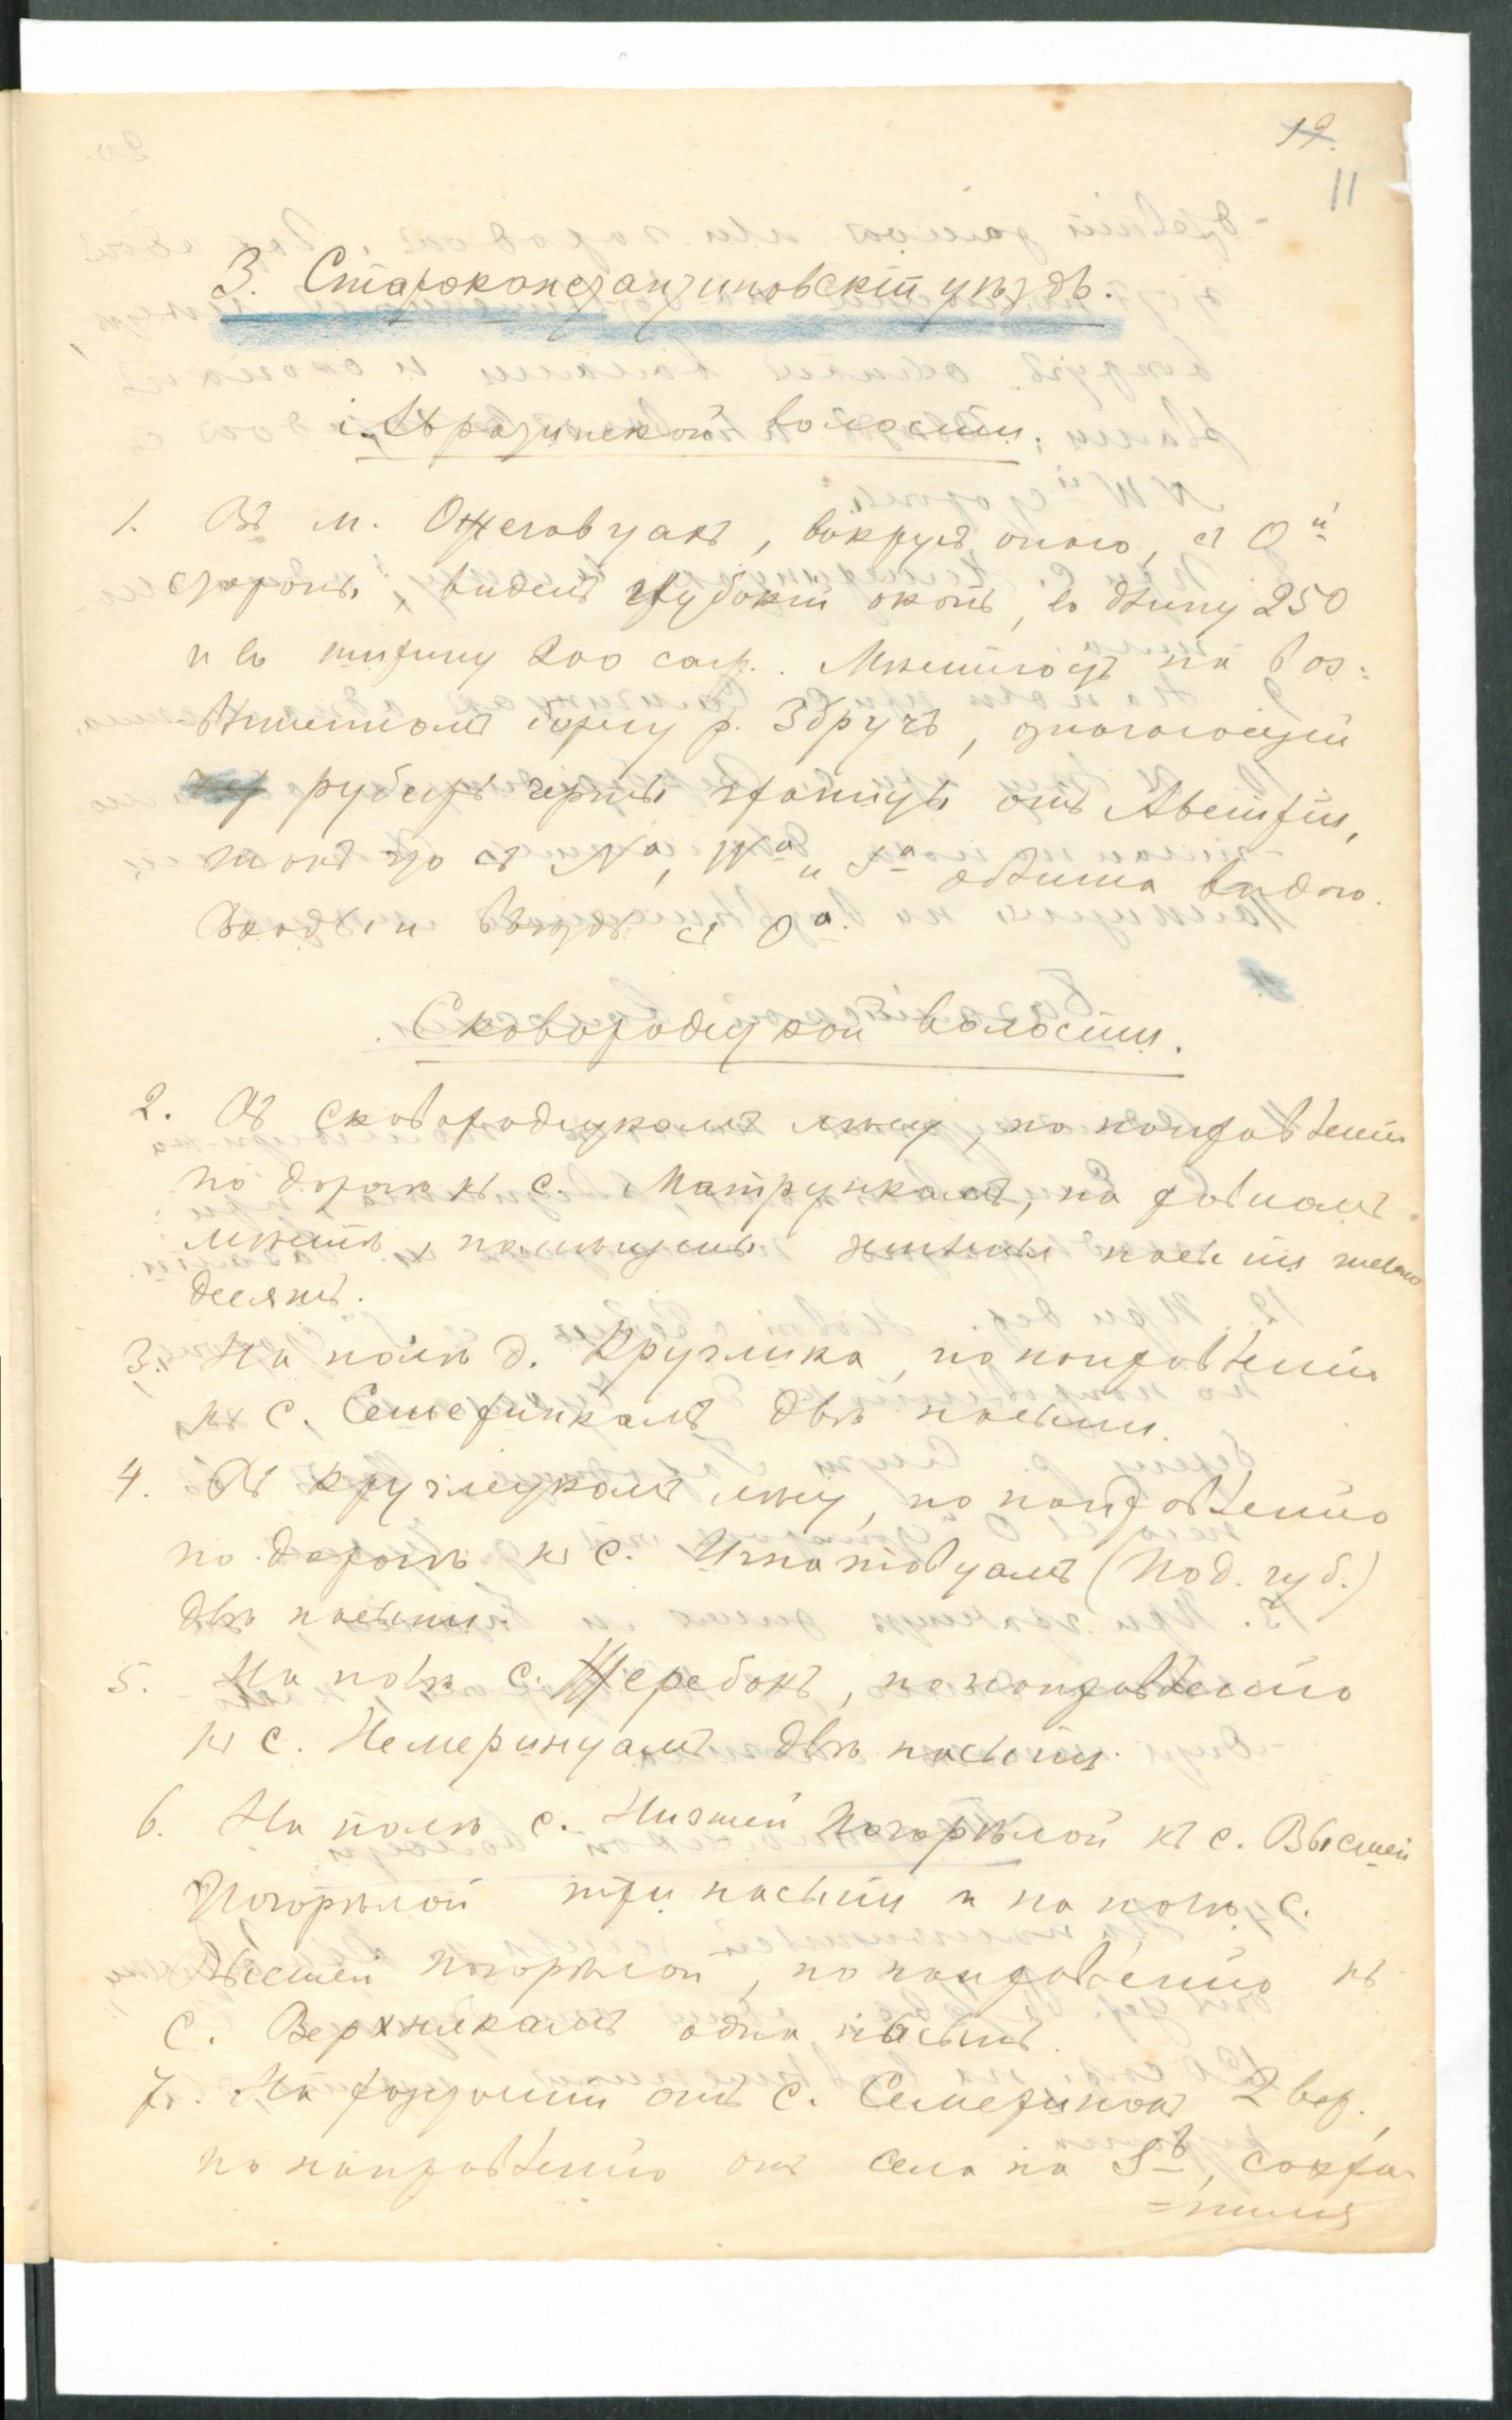 19.
11
3. Староконстантиновскій уѣздъ.
волости.
1. Въ м. Ожеговцахъ, вокругъ оного, съ Oй
стороны, виденъ глубокій окопъ, въ длину 250
и въ ширину 200 саж. Мѣстность на воз-
вышенномъ берегу р. Збручъ, отдѣляющій
рубежъ черты границы отъ Австріи,
такъ что съ Nа, Wа и Sа обтина водою.
Входъ и въѣздъ съ Oа.
Сковородецкой волости.
2. Въ Сковородецкомъ лѣсу, по направленію
по дорогѣ къ с. Матрункамъ, на равномъ
мѣстѣ, насыпи
десятъ.
3. На полѣ д. Кручлика, по направленію
къ с. Семеринкамъ двѣ насыпи.
4. Въ Кручлецкомъ лѣсу, по направленію
по дорогѣ къ с. Игнатовцамъ (Под. губ.)
двѣ насыпи.
5. На полѣ с. Жеребокъ, по направленію
къ с. Немеринцамъ двѣ насыпи.
6. На полѣ с. Низшей Погорѣлой къ с. Высшей
Погорѣлой три насыпи и на полѣ с.
Высшей Погорѣлой, по направленію къ
с. Верхнякамъ одна насыпь.
7. На разстояніи отъ с. Семеринокъ 2 вер.,
по направленію отъ села на Sъ, сохра-
=нился